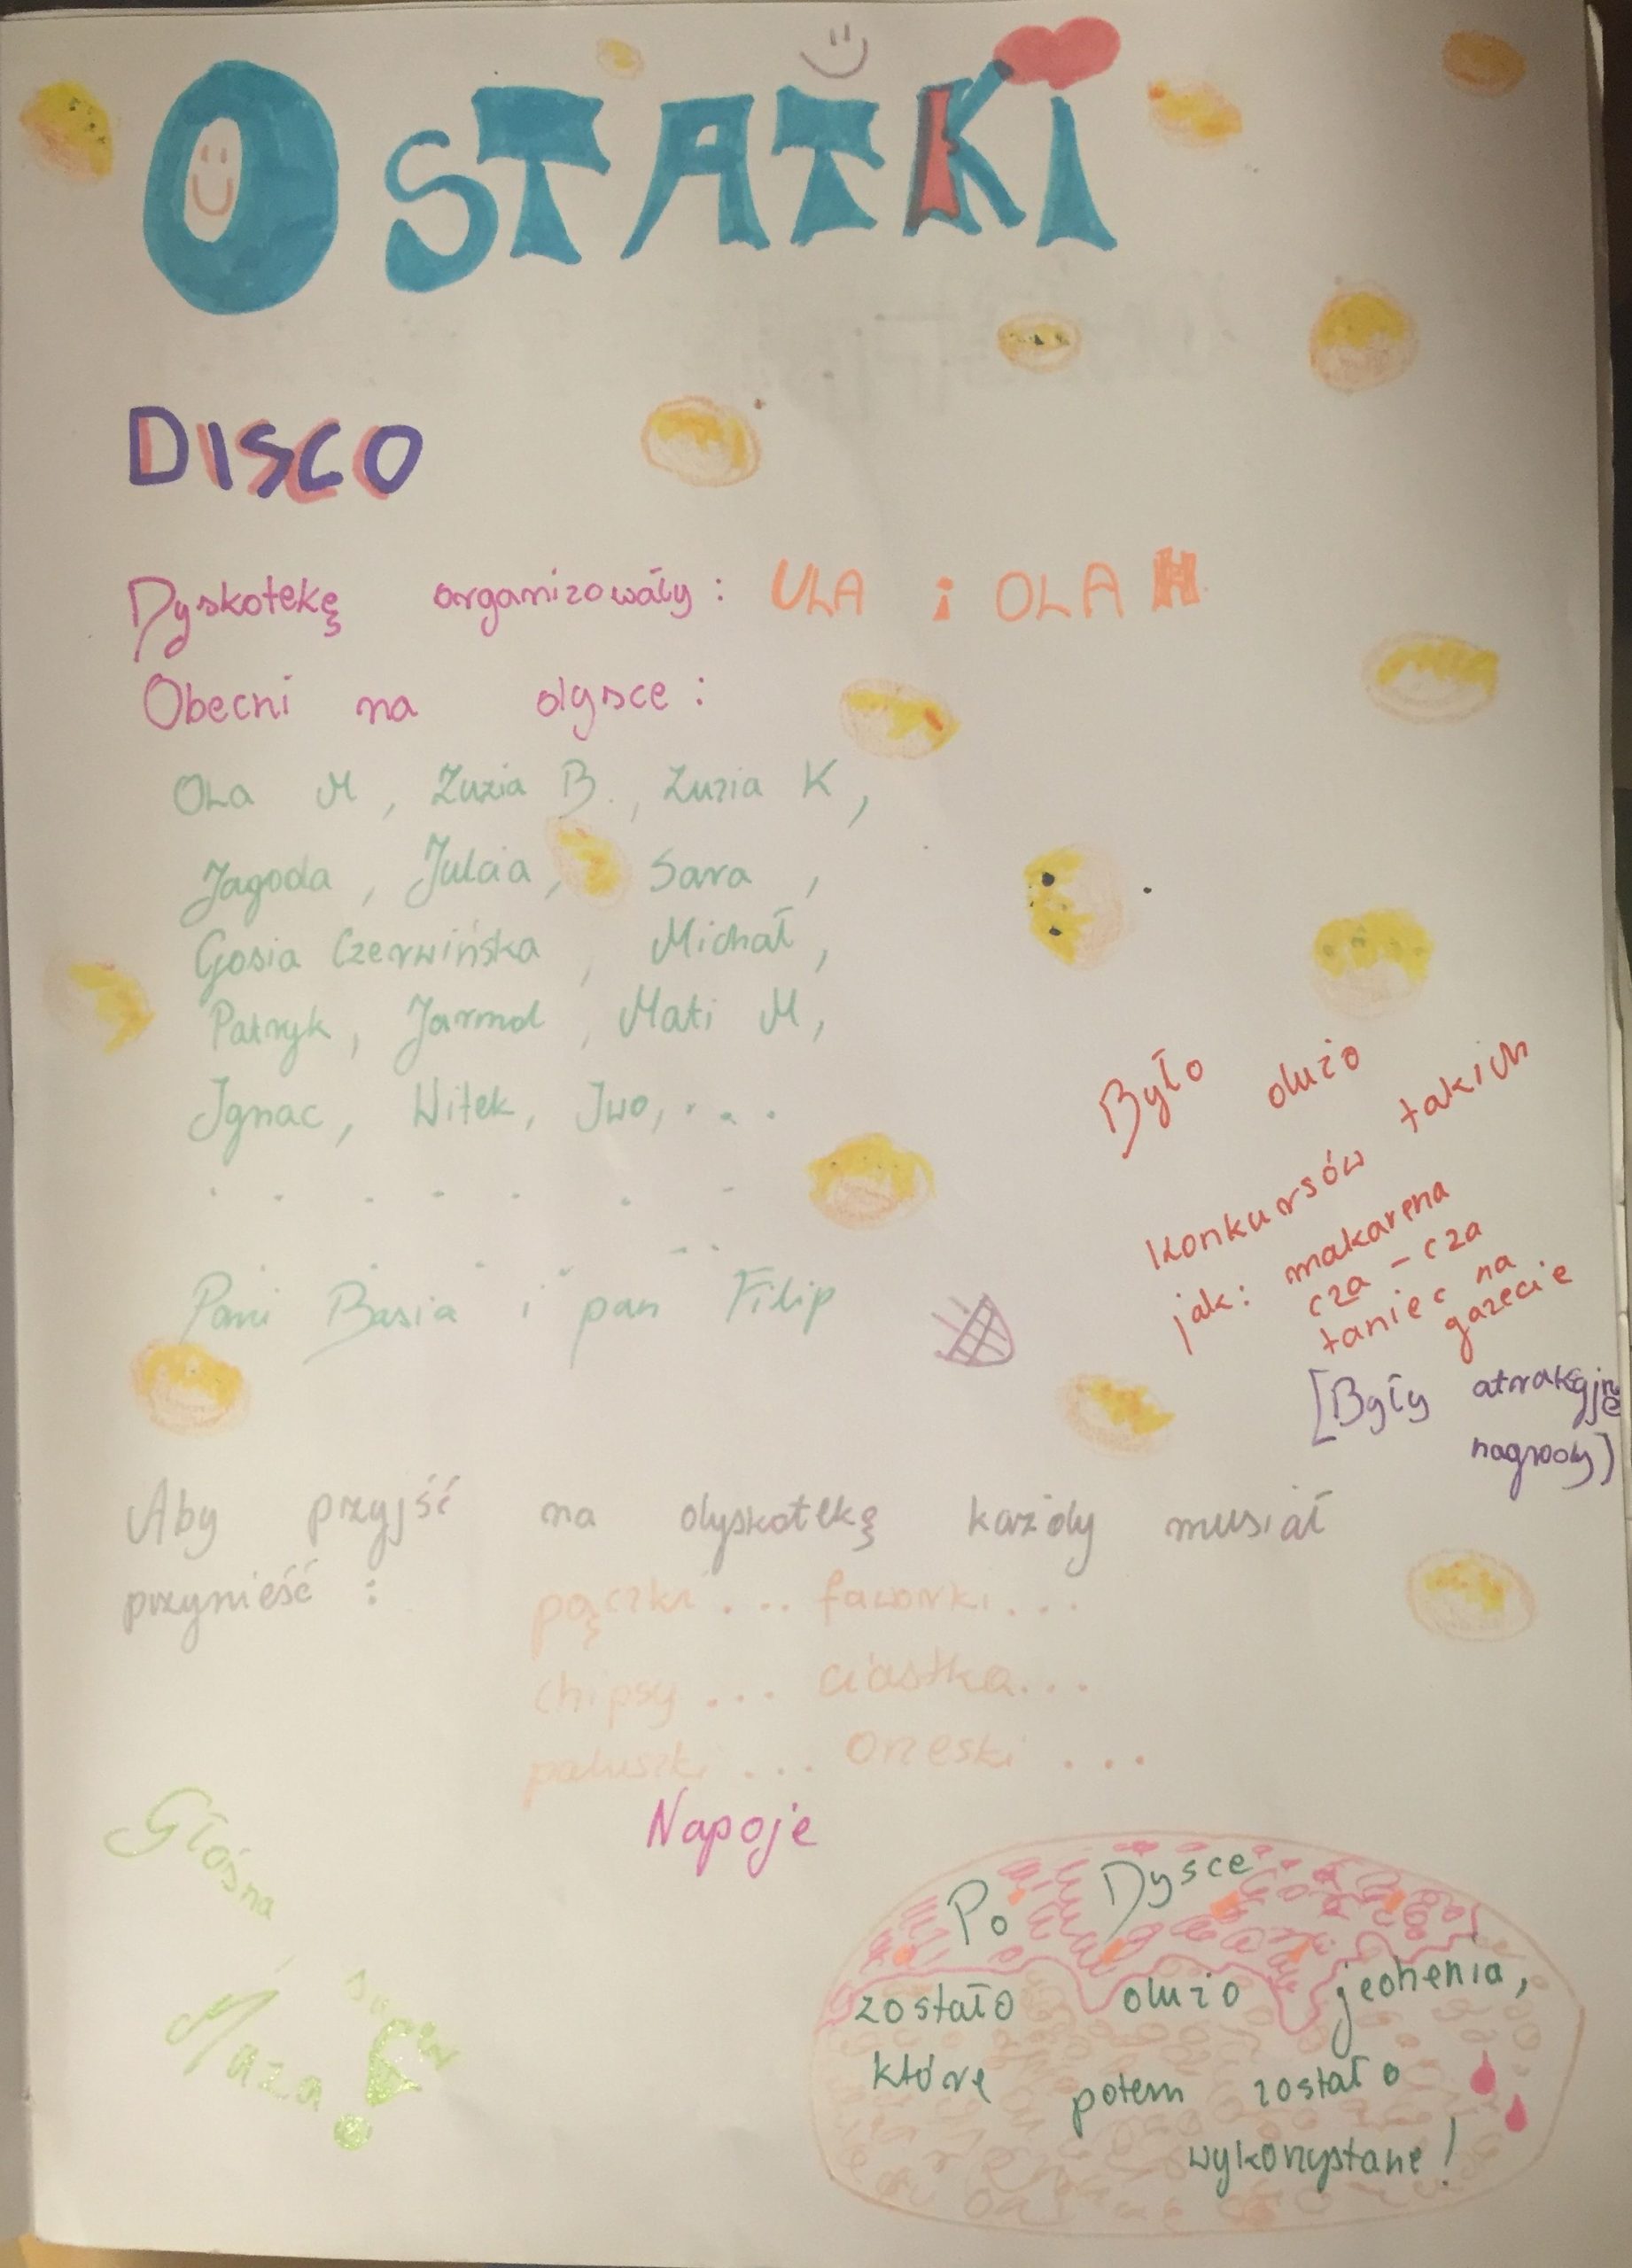 OSTATKI
DISCO
Dyskotekę organizowały: ULA i OLA H.
Obecni na dysce:
OLA M, Zuzia B., Zuzia K,
Jagoda, Julcia, Sara,
Gosia Czerwińska, Michał,
Patryk, Jarmol, Mati M,
Ignac, Witek, Iwo,...
Pani Basia i pan Filip
Było dużo
konkursów takich
jak: makarena
cza-cza
taniec na
gazecie
[Były atrakcyjne
nagrody]
Aby przyjść na dyskotekę każdy musiał
przynieść: pączki... faworki...
chipsy... ciastka...
paluszki... orzeski...
Napoje
Głośna
Muza
Po Dysce
zostało dużo jedzenia,
które potem zostało
wykorzystane!